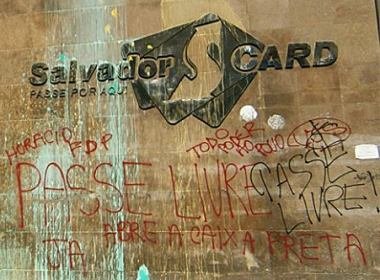 Salvador CARD
PASSE POR AQUI
HORACIO
FDP
PASSE LIVRE
PASSE
LIVRE!
JA
ABRE A CAIXA PRETA